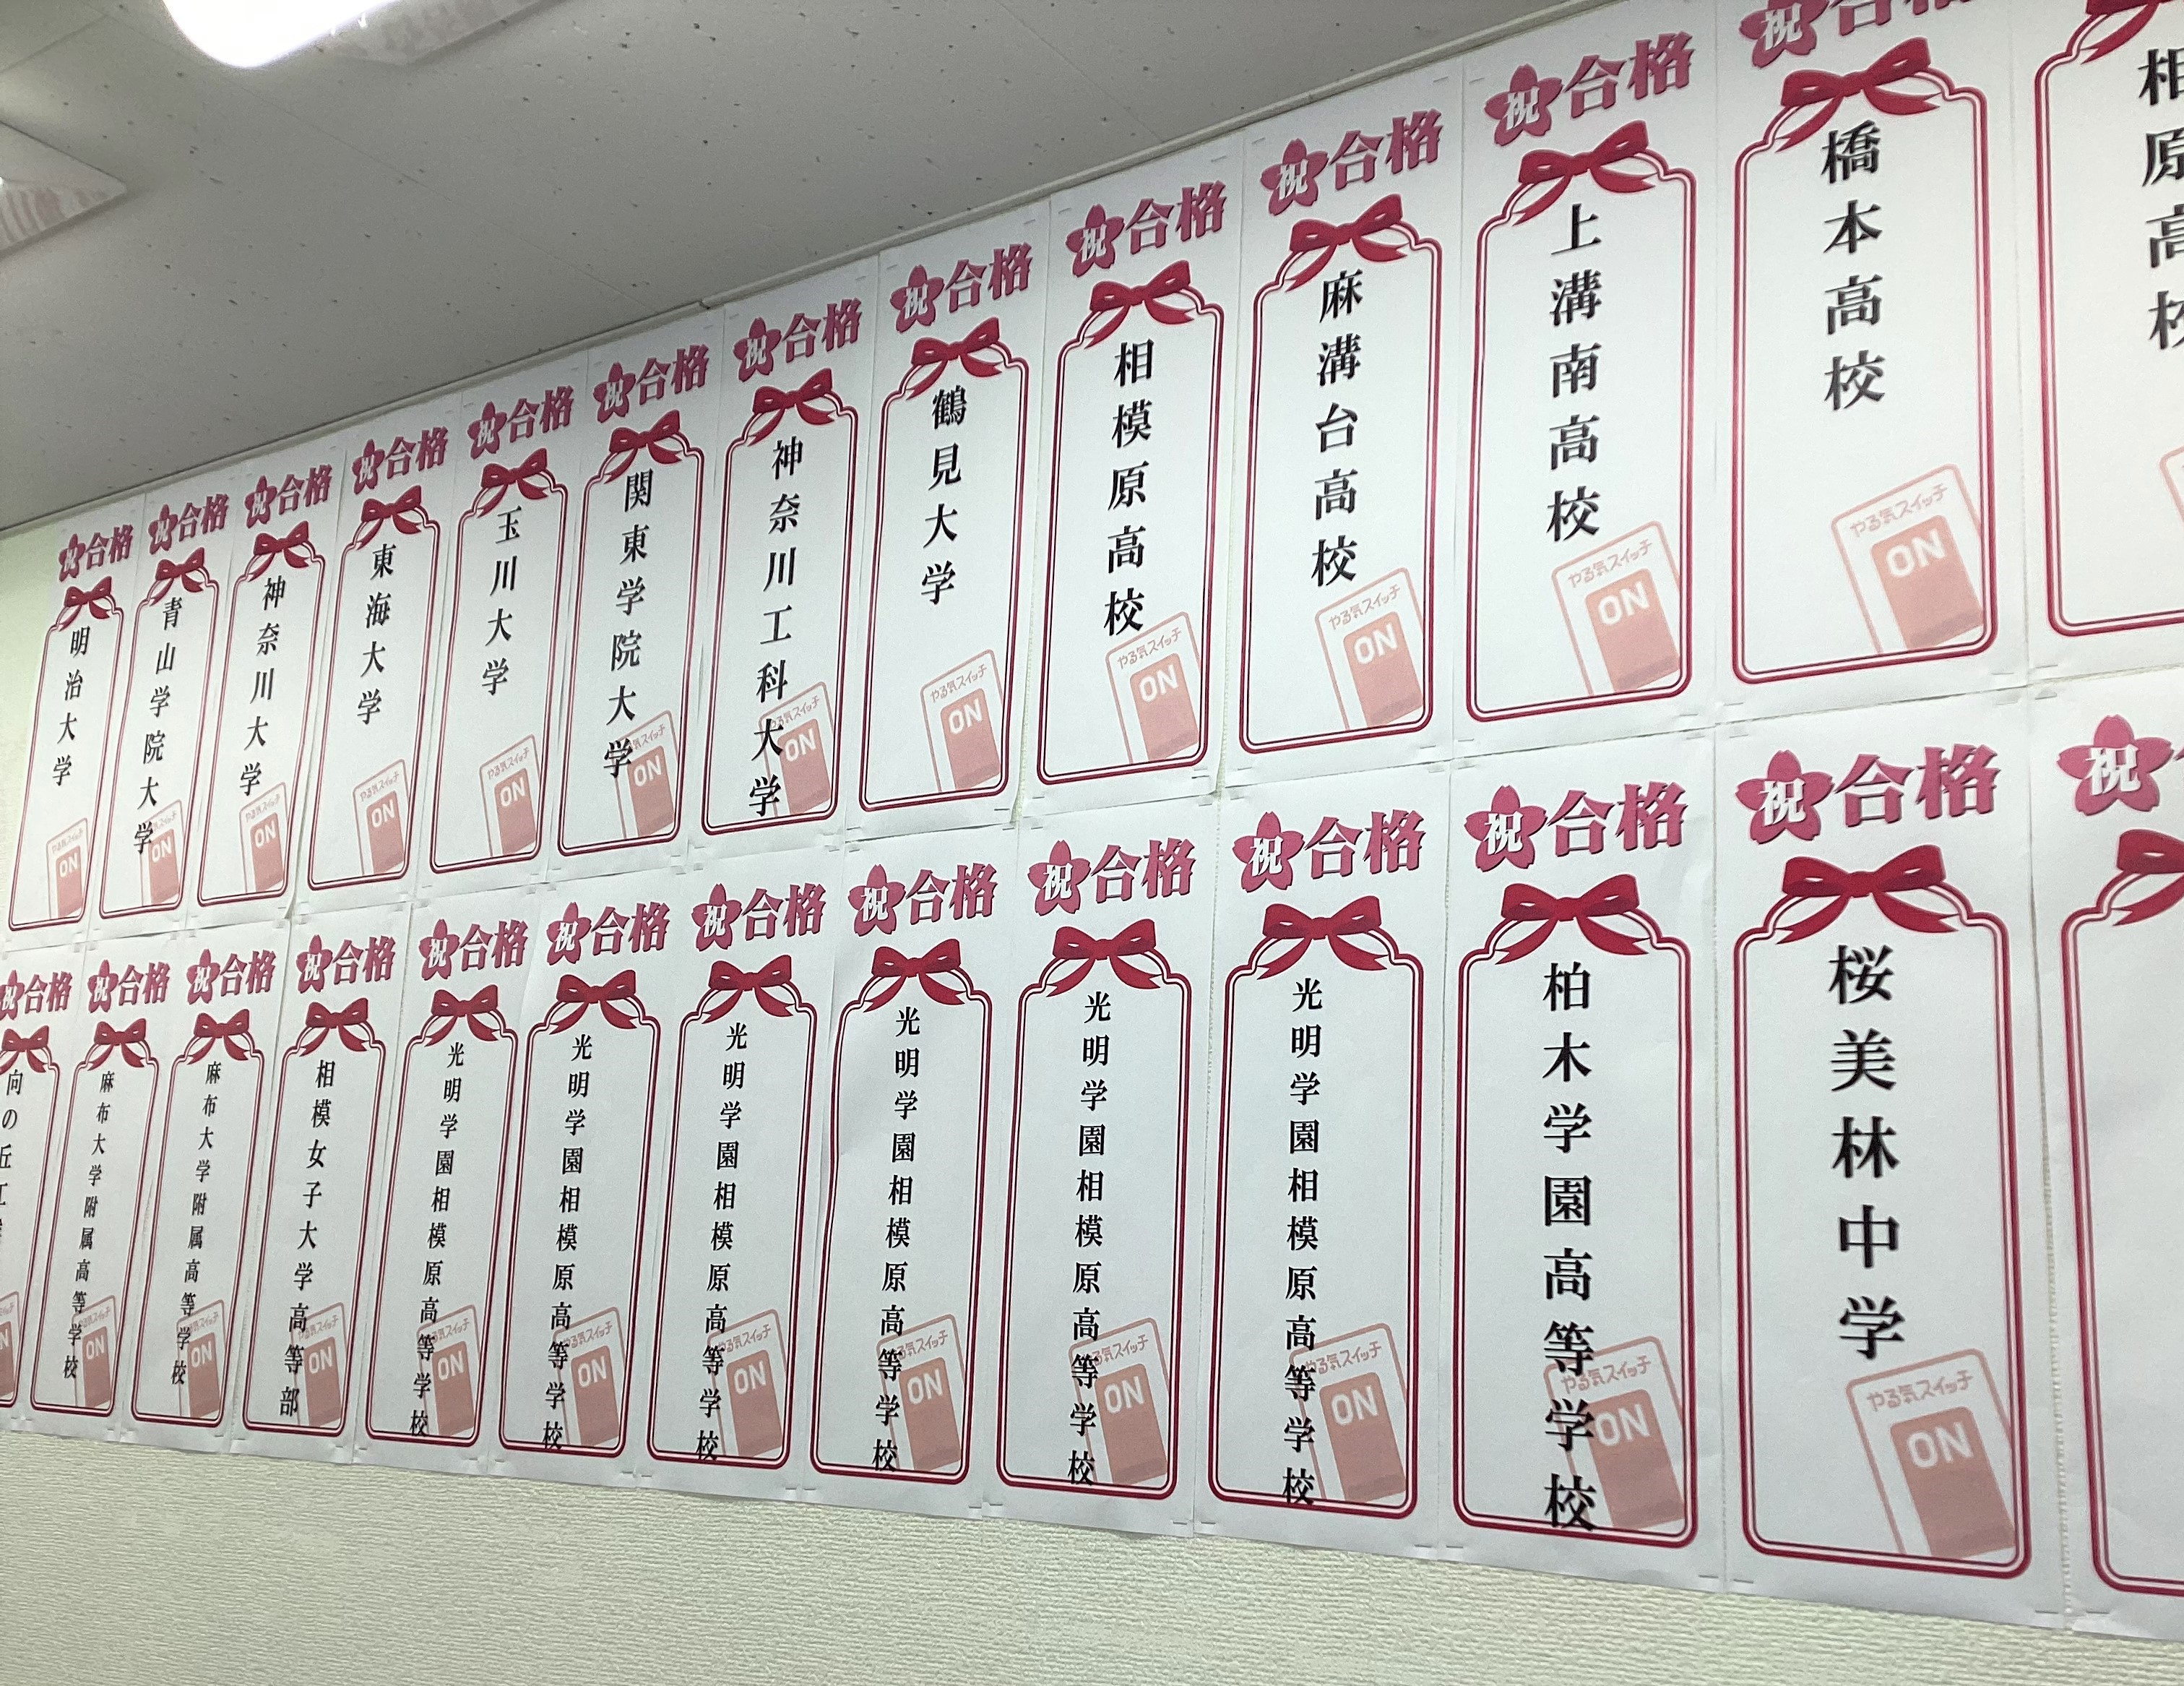 祝合格
明治大学
やる気スイッチ
ON
祝合格
青山学院大学
ON
祝合格
神奈川大学
やる気スイッチ
ON
祝合格
東海大学
やる気スイッチ
ON
祝合格
玉川大学
やる気スイッチ
ON
祝合格
関東学院大学
やる気スイッチ
ON
祝合格
神奈川工科大学
やる気スイッチ
ON
祝合格
鶴見大学
やる気スイッチ
ON
祝合格
相模原高校
やる気スイッチ
ON
祝合格
麻溝台高校
やる気スイッチ
ON
祝合格
上溝南高校
やる気スイッチ
ON
祝合格
橋本高校
やる気スイッチ
ON
相原高校
祝合格
向の丘工
祝合格
麻布大学附属高等学校
ON
祝合格
麻布大学附属高等学校
ON
祝合格
相模女子大学高等部
やる気スイッチ
ON
祝合格
光明学園相模原高等学校
やる気スイッチ
ON
祝合格
光明学園相模原高等学校
やる気スイッチ
ON
祝合格
光明学園相模原高等学校
やる気スイッチ
ON
祝合格
光明学園相模原高等学校
やる気スイッチ
ON
祝合格
光明学園相模原高等学校
やる気スイッチ
ON
祝合格
光明学園相模原高等学校
やる気スイッチ
ON
祝合格
柏木学園高等学校
やる気スイッチ
ON
祝合格
桜美林中学
やる気スイッチ
ON
祝